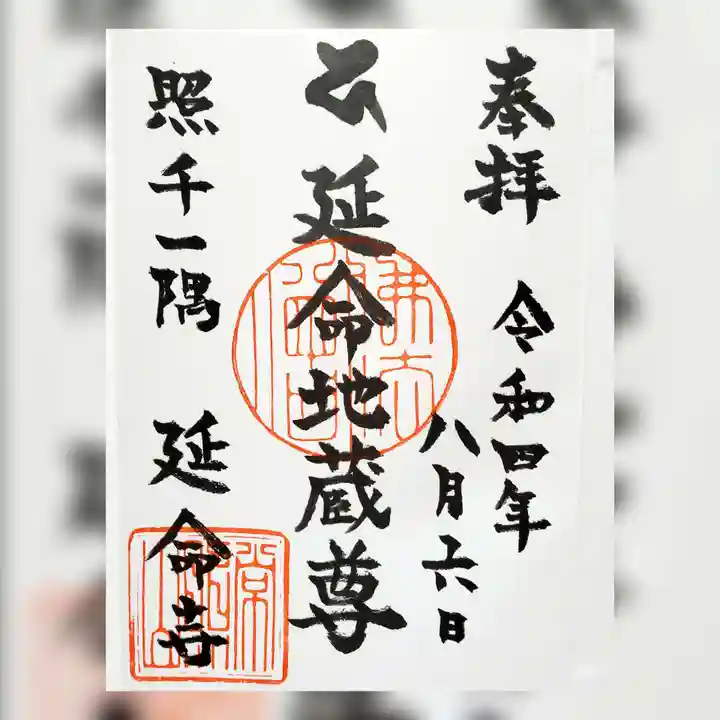 奉拝
令和四年
八月六日
延命地蔵尊
照千一隅
延命寺